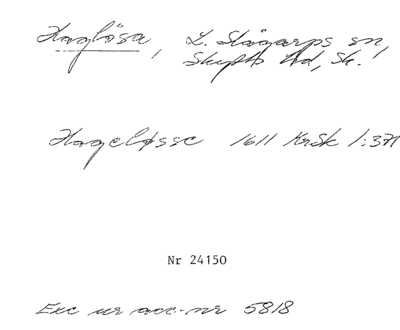 Haglösa, L. Slågarps sn,
Skytts hd, Sk.
Hageløsse 1611 KrSk 1:371
Nr 24150
Exc ur acc-nr 5818